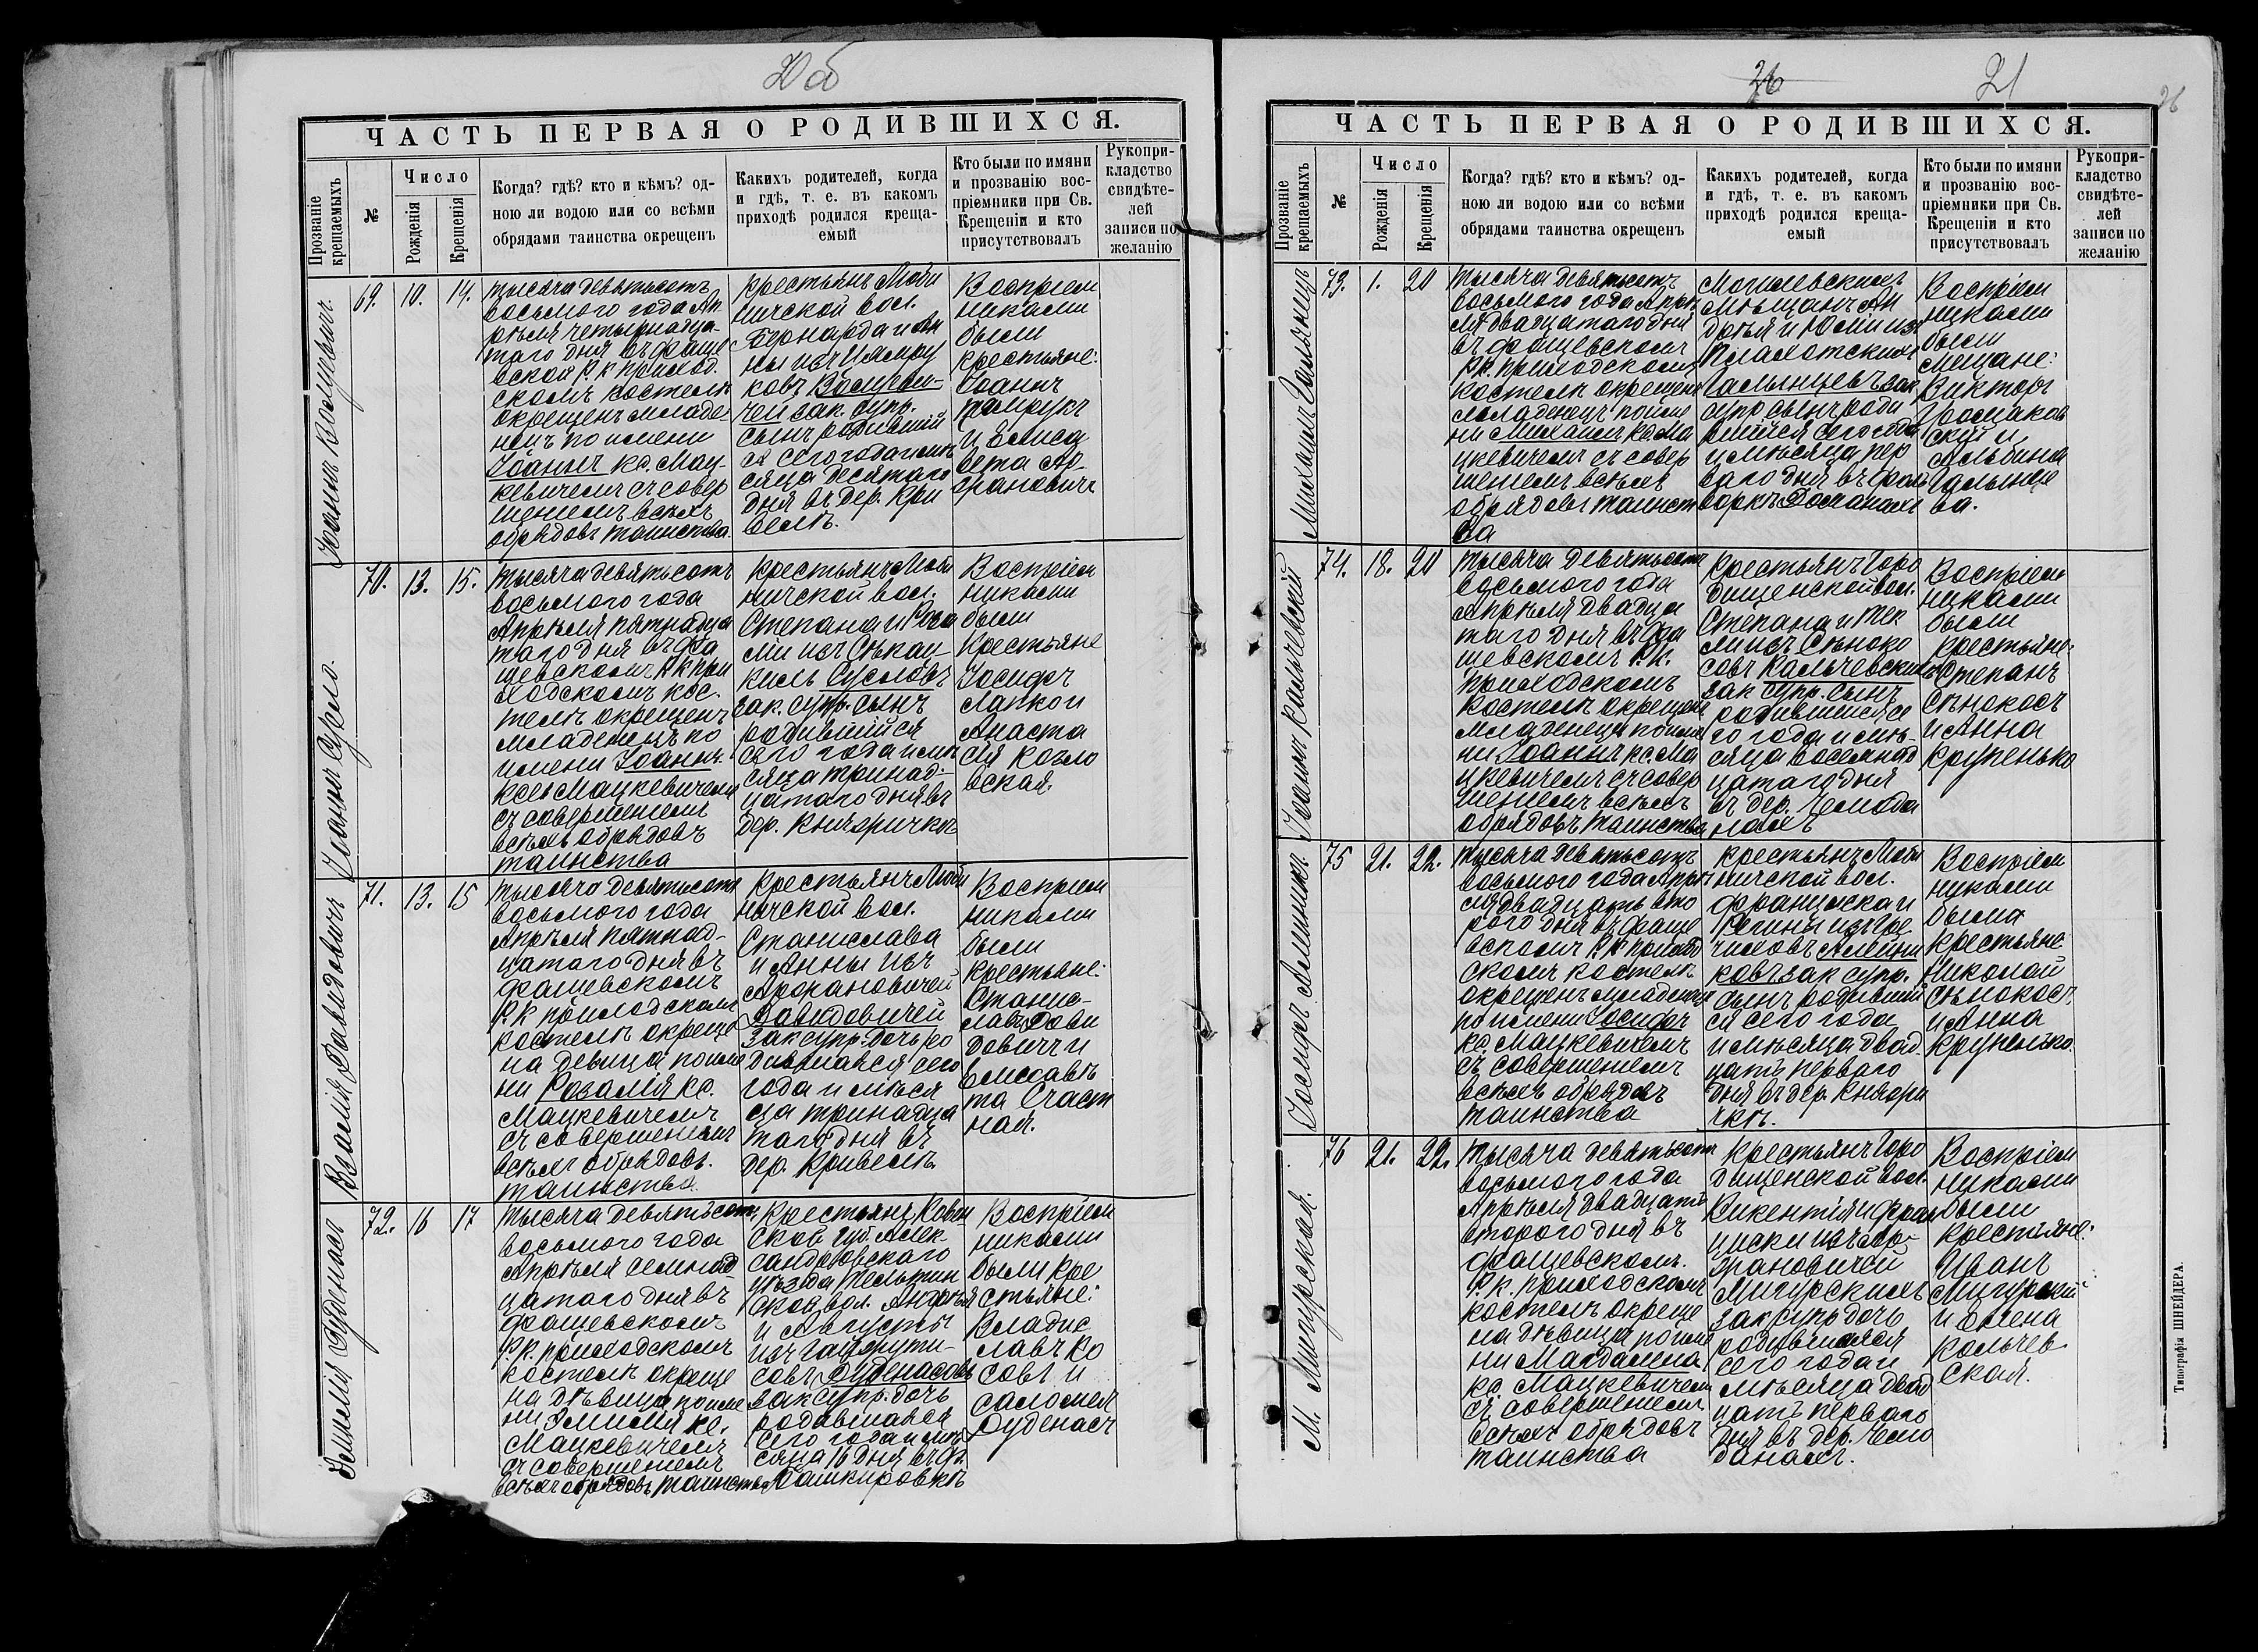 20 об
ЧАСТЬ ПЕРВАЯ О РОДИВШИХСЯ.
Прозваніе крещаемыхъ
№
Число
Рожденія
Крещенія
Когда? гдѣ? кто и кѣмъ? од-
ною ли водою или со всѣми
обрядами таинства окрещенъ
Какихъ родителей, когда
и гдѣ, т. е. въ какомъ
приходѣ родился креща-
емый
Кто были по имяни
и прозванію вос-
пріемники при Св.
Крещеніи и кто
присутствовалъ
Рукопри-
кладство
свидѣте-
лей
записи по
желанію
Іоаннъ
69. 10. 14.
тысяча девятьсотъ
восьмого года Ап
рѣля четырнадца-
таго дня въ Фаще
вской Р.к приход.
скомъ костелѣ
окрещенъ младе-
нецъ по имени
Іоаннъ кс. Мац-
кевичемъ съ совер
шеніемъ всѣхъ
обрядовъ таинства.
крестьянъ
ничской вол.
Бернарда и Ан
ны изъ
зак. супр.
сынъ родившій
ся сего года и мѣ
сяца десятаго
дня въ дер. Кри
велѣ.
Воспріем
никами
были
крестьяне:
Іоаннъ
и Елиса
вета
Іоаннъ Сусло.
70. 13. 15.
тысяча девятьсотъ
восьмого года
Апрѣля пятнадца
таго дня въ Фа
щевскомъ Р.к при
ходскомъ кос-
телѣ окрещенъ
младенецъ по
имени Іоаннъ
ксен Мацкевичемъ
съ совершеніемъ
всѣхъ обрядовъ
таинства
крестьянъ
ничской вол.
Степана и Роза
ліи изъ
Сусловъ
зак. супр. сынъ
родившійся
сего года и мѣ
сяца тринад-
цатаго дня въ
дер. Княгричкѣ
Воспріем
никами
были
крестьяне
Іосифъ
Лапко и
Анаста
сія Козло
вская.
Розалія Давидовичъ
71. 13. 15
тысяча девятьсотъ
восьмого года
Апрѣля пятнад-
цатаго дня въ
Фащевскомъ
Р.к приходскомъ
костелѣ окреще
на девица по име
ни Розалія кс.
Мацкевичемъ
съ совершеніемъ
всѣхъ обрядовъ.
таинства.
крестьянъ
ничской вол.
Станислава
и Анны изъ
Давидовичей
зак супр. дочь ро
дившаяся сего
года и мѣся
ца тринадца
таго дня въ
дер. Кривелѣ.
Воспріем
никами
были
крестьяне:
Станис-
лавъ Дави
довичъ и
Елисаве
та Счаст
ная.
Эмилія Руденасъ
72. 16 17
тысяча девятьсотъ
восьмого года
Апрѣля семнад
цатаго дня въ
Фащевскомъ
Р.к. приходскомъ
костелѣ окреще
на дѣвица по име
ни Эмилія кс.
Мацкевичемъ
съ совершеніемъ
всѣхъ обрядовъ таинства
крестьянъ Ковен
ской губ. Алек-
сандровскаго
уѣзда
ской вол. Андрея
и Августы
изъ
совъ Руденасовъ
зак супр. дочь
родившаяся
сего года и мѣ
сяца 16 дня въ ф.
Башкировкѣ
Воспріем
никами
были кре
стьяне:
Владис
лавъ Ко
совъ и
Саломея
Руденасъ
26
21
26
ЧАСТЬ ПЕРВАЯ О РОДИВШИХСЯ.
Прозваніе крещаемыхъ
№
Число
Рожденія
Крещенія
Когда? гдѣ? кто и кѣмъ? од-
ною ли водою или со всѣми
обрядами таинства окрещенъ
Какихъ родителей, когда
и гдѣ, т. е. въ какомъ
приходѣ родился креща-
емый
Кто были по имяни
и прозванію вос-
пріемники при Св.
Крещеніи и кто
присутствовалъ
Рукопри-
кладство
свидѣте-
лей
записи по
желанію
Михаилъ Галынецъ
73. 1. 20
тысяча девятьсотъ
восьмого года Апрѣ
ля двадцатаго дня
въ Фащевскомъ
Р.к. приходскомъ
костелѣ окрещенъ
младенецъ по име
ни Михаилъ кс. Ма
цкевичемъ съ совер
шеніемъ всѣхъ
обрядовъ таинст
ва
Могилевскихъ
мѣщанъ Ан
дрея и Юліи изъ
Галынцевъ зак.
супр сынъ роди
вшійся сего года
и мѣсяца пер
ваго дня въ фоль
варкѣ Романахъ
Воспріем
никами
были
мещане:
Викторъ
скій и
Альбина
Галынце
ва.
Іоаннъ Кольчевскій
74. 18. 20
тысяча девятьсотъ
восьмого года
Апрѣля двадца
таго дня въ Фа
щевскомъ Р.к.
приходскомъ
костелѣ окрещенъ
младенецъ по име
ни Іоаннъ кс. Ма
цкевичемъ съ совер
шеніемъ всѣхъ
обрядовъ таинства
крестьянъ Горо
дищенской вол.
Степана и Тек
ли изъ Сѣноко
совъ Кольчевскихъ
зак супр. сынъ
родившійся се
го года и мѣ-
сяца восемнад
цатаго дня
въ дер. Чемода
нахъ
Воспріем
никами
были
крестьяне:
Степанъ
Сѣнокосъ
и Анна
Крупенько
Іосифъ Алейниковъ
75 21. 22.
тысяча девятьсотъ
восьмого года Апрѣ
ля двадцать вто
рого дня въ Фаще
вскомъ Р.к приход
скомъ костелѣ
окрещенъ младенецъ
по имени Іосифъ
кс. Мацкевичемъ
съ совершеніемъ
всѣхъ обрядовъ
таинства
крестьянъ
ничской вол.
Францишка и
Регины изъ Гре
чиховъ Алейни
ковъ зак супр.
сынъ родивший
ся сего года
и мѣсяца двад.
цать перваго
дня въ дер. Княгри
чкѣ.
Воспріем
никами
были
крестьяне
Николай
Сѣнокосъ
и Анна
Крупенько.
М. Мигурская.
76 21. 22.
тысяча девятьсотъ
восьмого года
Апрѣля двадцать
второго дня въ
Фащевскомъ
Р.к. приходскомъ
костелѣ окреще
на дѣвица по име
ни Магдалена
кс. Мацкевичемъ
съ совершеніемъ
всѣхъ обрядовъ
таинства
крестьянъ Горо
дищенской вол.
Викентія и Фран
циски изъ
Мигурскихъ
зак супр дочь
родившаяся
сего года и
мѣсяца двад
цать перваго
дня въ дер. Чемо
данахъ.
Воспріем
никами
были
крестьяне:
Иванъ
Мигурскій
и Елена
Кольчев-
ская.
Типографія ШНЕЙДЕРА.